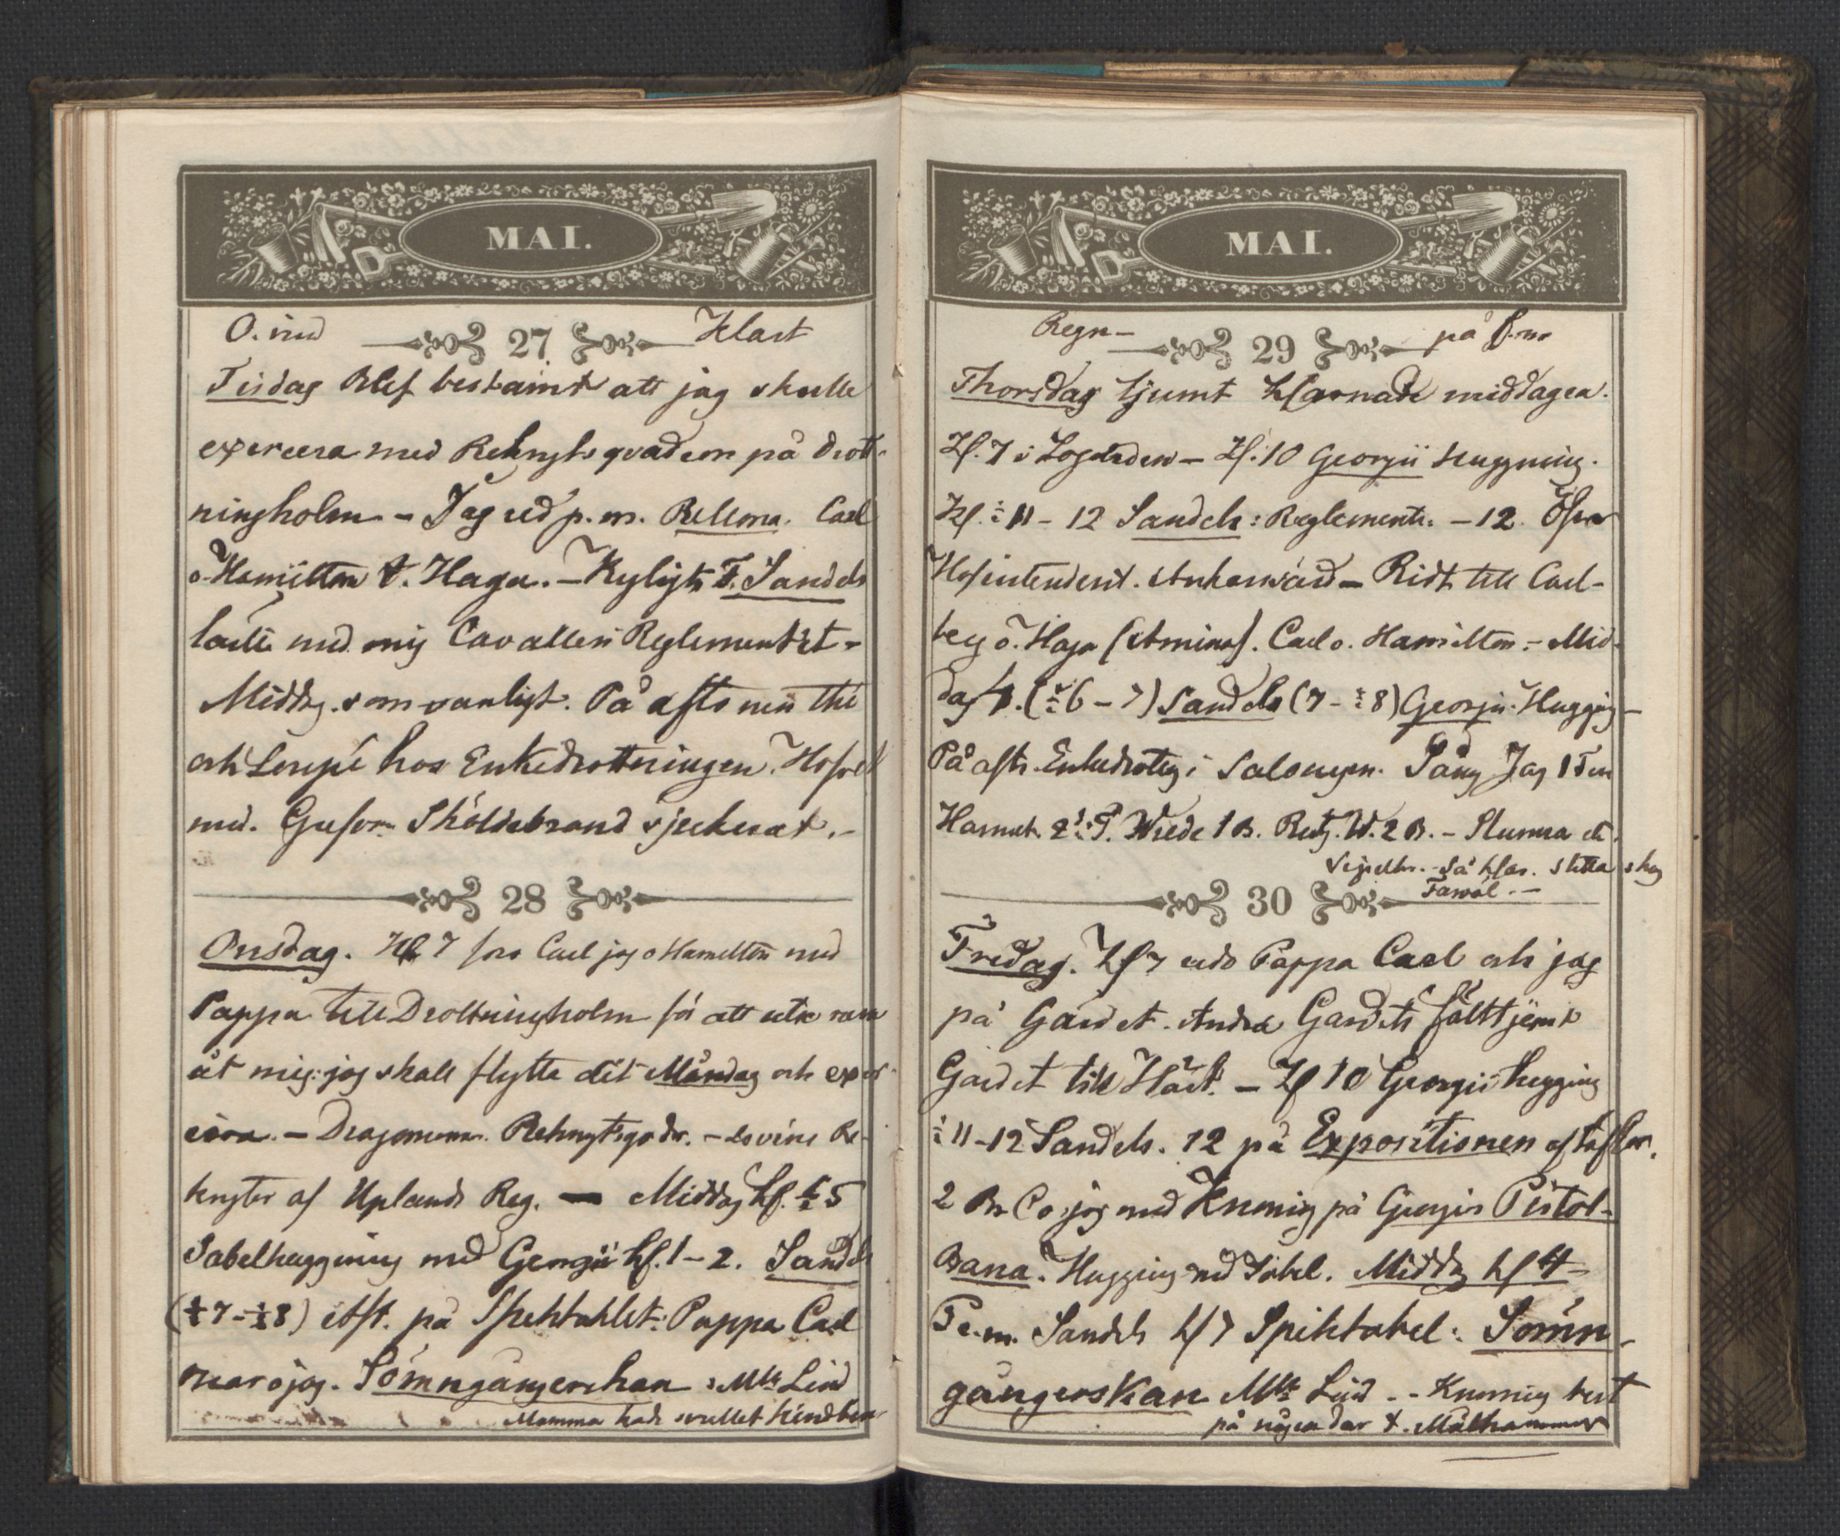 MAI.
O. vind 27 Klart
Tisdag Blef bestämdt att jag skulle
exercera med Rekryt sqvadron på Drott-
ningholm - Jag red p. m. Bellona. Carl
o Hamilton t. Haga. - Kyligt. F. Sandels
läste med mig Cavalleri Reglementet -
Middag som vanligt. På aftonen thé
och Soupé hos Enkedrottningen. Hofvet
med. Grefvar Sköldebrand
28
Onsdag. Kl. 7 foro Carl jag o Hamilton med
Pappa till Drottningholm för att se rum
åt mig: jag skall flytta dit Måndag och exer-
cera. - Dragonerna. Rekrytsqvdr. - Re-
kryter af Uplands Reg. — Middag kl. ½ 5
Sabelhuggning med Georgii kl. 1 - 2. Sandels
(½ 7 - ½ 8) Aft. på Spektaklet: Pappa Carl
o jag. Sömngångerskan : Mlle Lind
Mamma hade svullet kindben
MAI.
Regn - 29 på f.m.
Thorsdag ljumt klarnade middagen.
Kl. 7 i Logården - Kl. 10 Georgii Huggning.
Kl. ½ 11 - 12 Sandels : Reglement. - 12
Hofintendent. Ankarsvärd - Ridt till Carl-
berg o. Haga (Amina). Carl o. Hamilton. - Mid-
dag 4. (½ 6 - 7) Sandels (7 - ½ 8) Georgii. Huggng -
På aft. Enkedrotng i Salongen. Sång Jag 1 Ten
Hamnet. 2 T. Wrede 1 B. W. 2 B. - Stumma
Så klar. stilla skog
30
Fredag. Kl 7 redo Pappa Carl och jag
på Gärdet. Andra Gardets fälttjenst
Gardet till Häst. - Kl 10 Georgii huggning
½ 11 - 12 Sandels. 12 på Expositionen af taflor.
2 jag med Knoning på Georgiis Pistol-
Bana. Huggning med Sabel. Middag kl 4 -
P e. m. Sandels kl 7 Spektakel : Sömn-
gångerskan Mlle Lind - - Knoning rest
på några dar t. Målhammar